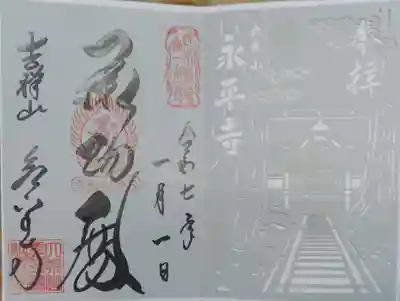 奉拝
大本山
永平寺
令和七年
一月一日
承陽殿
吉祥山
永平寺